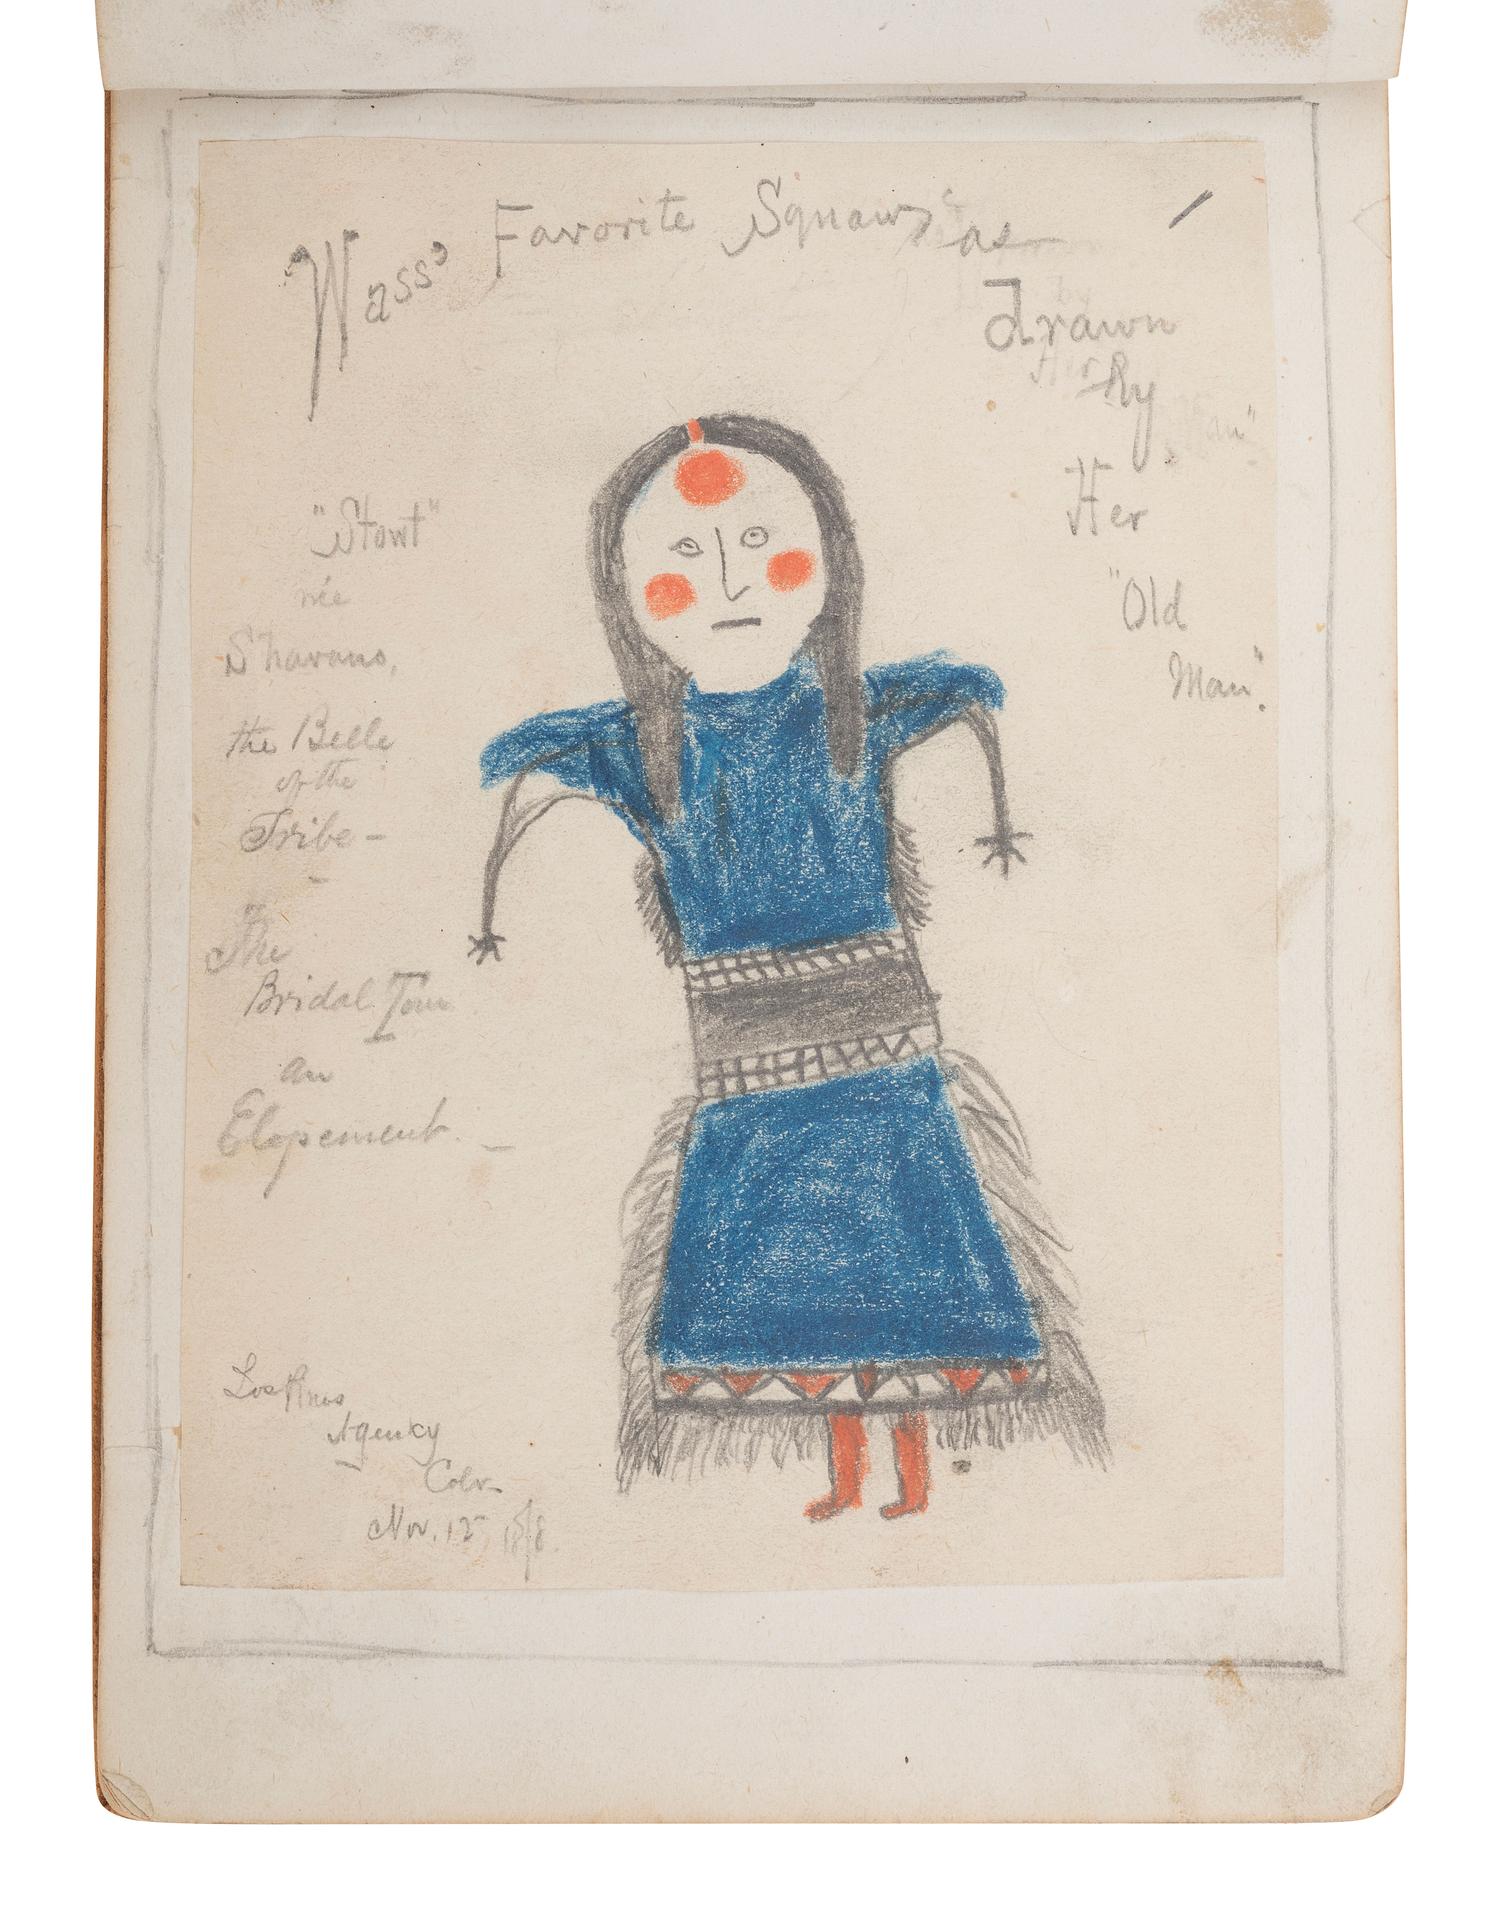 Wass' Favorite Squaw as
drawn
By
Her
"Old
Man".
"Stowt"
née
Shavano,
the Belle
of the
Tribe -
The
Bridal Tour
an
Elopement. -
Los Pinos
Agency
Colo-
Nov. 12